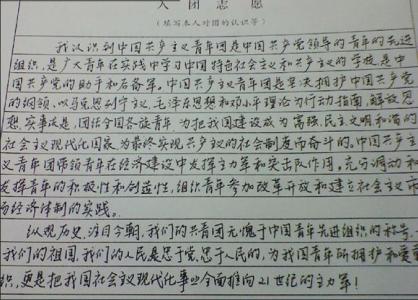 入团志愿
（填写本人对团的认识等）
我认识到中国共产主义青年团是中国共产党领导的青年的先进
组织，是广大青年在实践中学习中国特色社会主义和共产主义的学校是中
国共产党的助手和后备军。中国共产主义青年团是坚决拥护中国共产党
的纲领，以马克思列宁主义，毛泽东思想和邓小平理论为行动指南，解放思
想，实事求是，团结全国各族青年，为把我国建设成为富强，民主文明和谐的
社会主义现代化国家，为最终实现共产主义的社会制度而奋斗的。中国共产主
义青年团带领青年在经济建设中发挥主力军和突击队作用。充分调动和
发挥青年的积极性和创造性，组织青年参加改革开放和建立社会主义市
场经济体制的实践。
纵观历史，注目今朝，我们的共青团无愧于中国青年先进组织的称号。
我们的祖国，我们的人民是忠于党，忠于人民的，为我国青年所拥护和爱
织，更是把我国社会主义现代化事业全面推向21世纪的主力军！